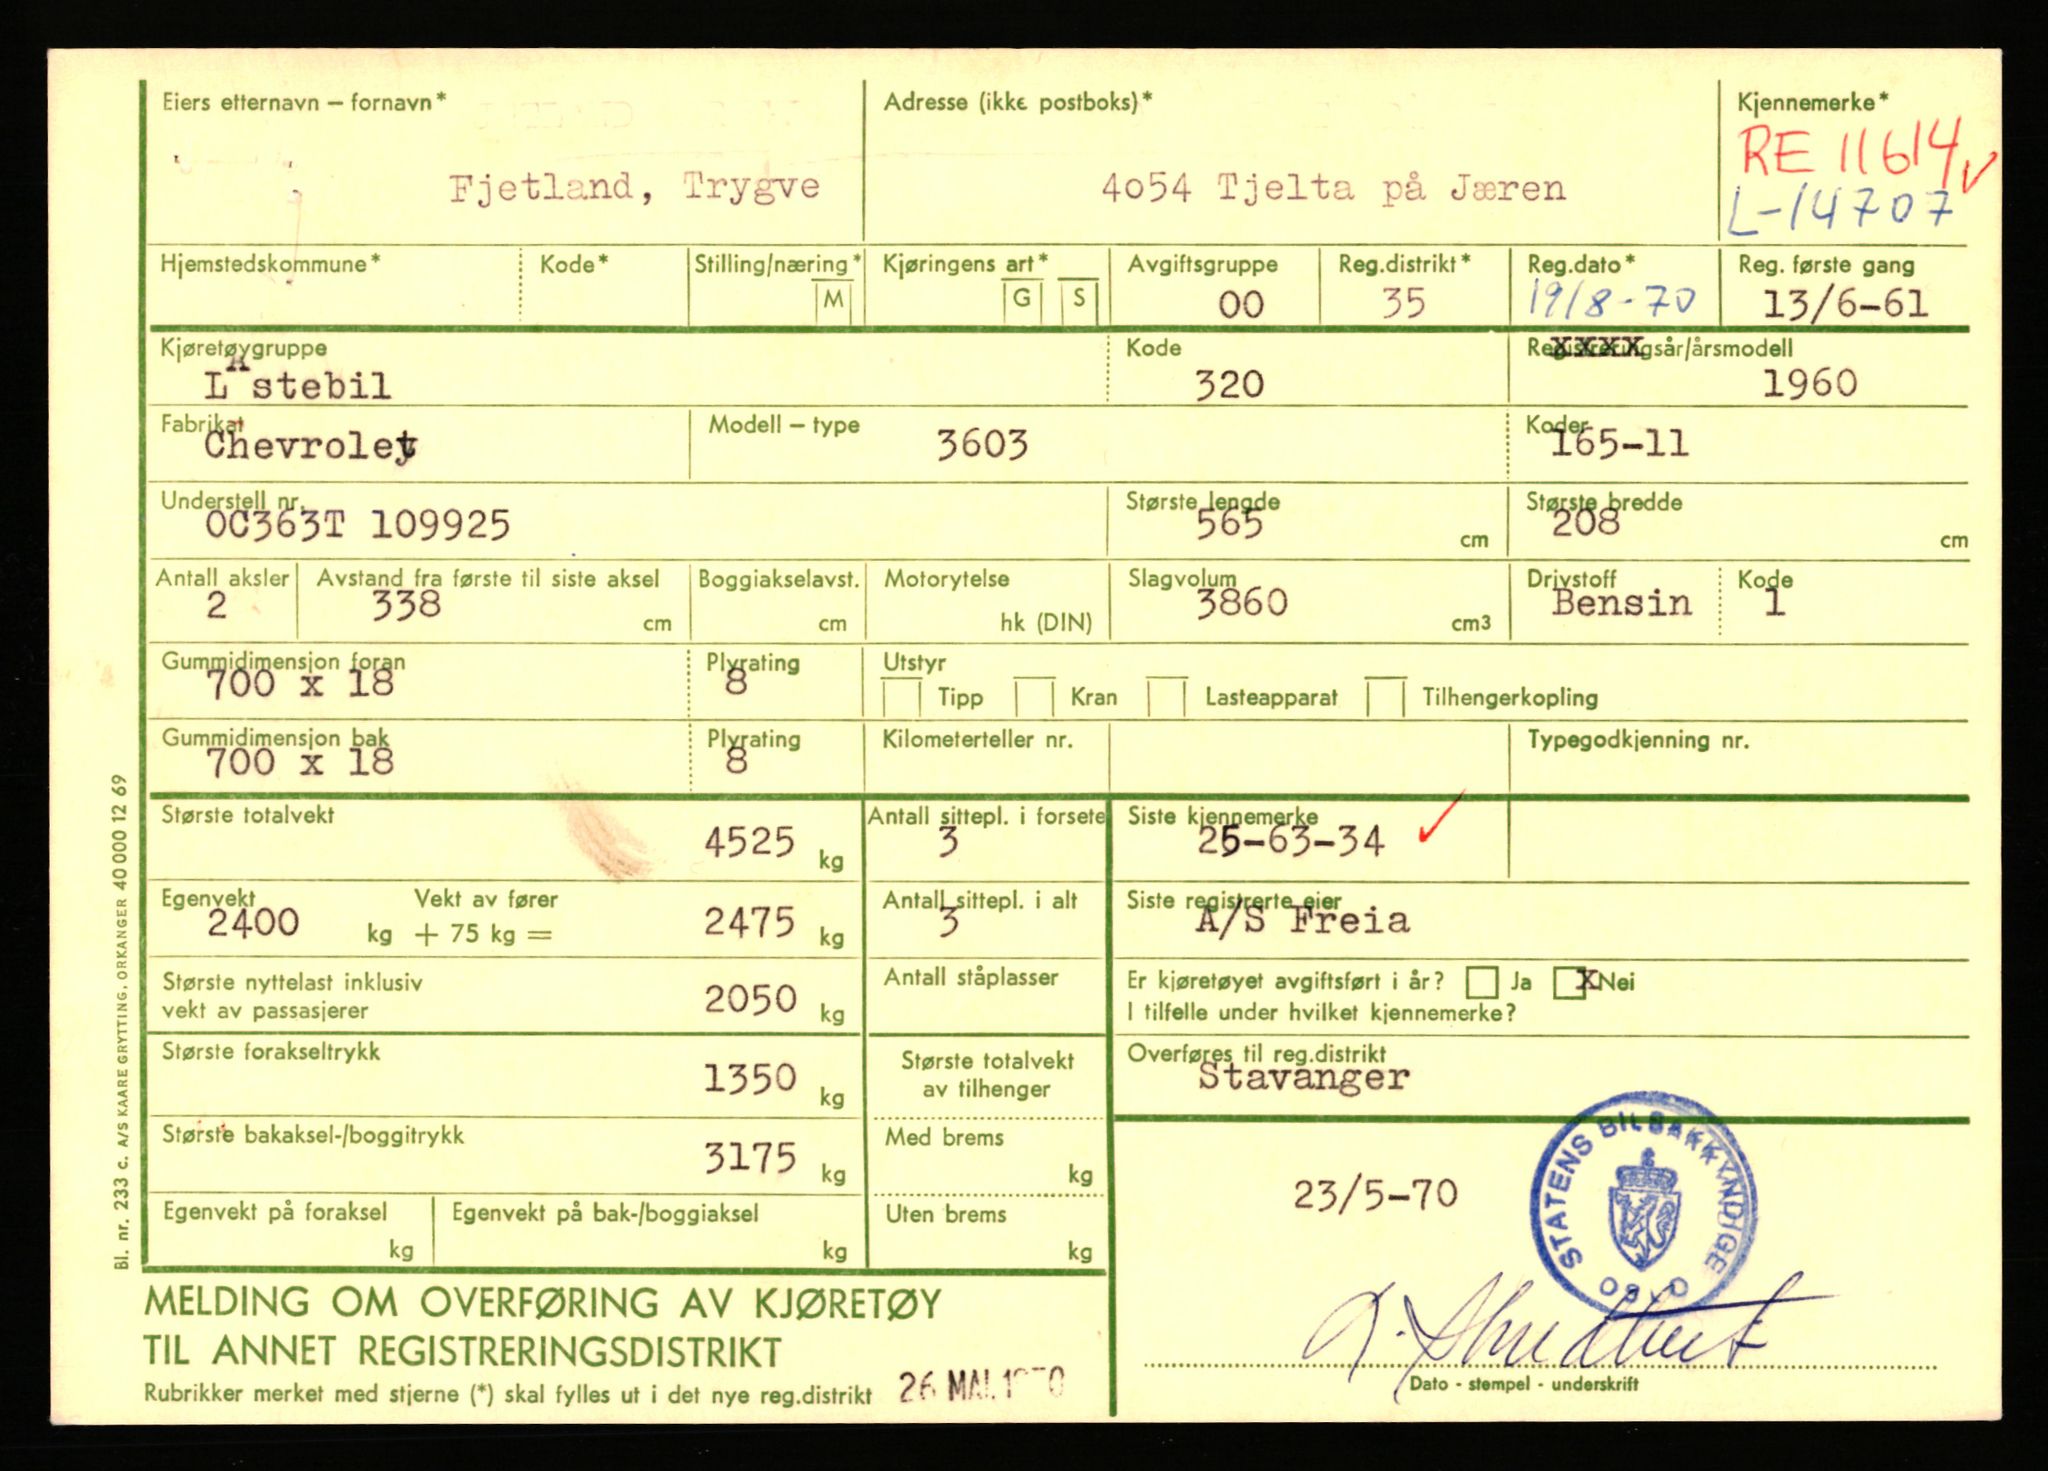 Eiers etternavn – fornavn* Adresse (ikke postboks)* Kjennemerke*
RE 11614
Fjetland, Trygve 4054 Tjelta på Jæren
L-14707
Hjemstedskommune* Kode* Stilling/næring* Kjøringens art* Avgiftsgruppe Reg.distrikt* Reg.dato* Reg. første gang
M G S 00 35 19/8-70 13/6-61
Kjøretøygruppe Kode Registreringsår/årsmodell
LAstebil 320 xxxx 1960
Fabrikat Modell – type Koder
Chevrolet 3603 165-11
Understell nr. Største lengde Største bredde
OC363T 109925 565 cm 208 cm
Antall aksler Avstand fra første til siste aksel Boggiakselavst. Motorytelse Slagvolum Drivstoff Kode
2 338 cm cm hk (DIN) 3860 cm3 Bensin 1
Gummidimensjon foran Plyrating Utstyr
700 x 18 8 Tipp Kran Lasteapparat Tilhengerkopling
Gummidimensjon bak Plyrating Kilometerteller nr. Typegodkjenning nr.
700 x 18 8
Største totalvekt Antall sittepl. i forsete Siste kjennemerke
4525 kg 3 25-63-34
Egenvekt Vekt av fører Antall sittepl. i alt Siste registrerte eier
2400 kg + 75 kg = 2475 kg 3 A/S Freia
Største nyttelast inklusiv Antall ståplasser Er kjøretøyet avgiftsført i år? Ja X Nei
vekt av passasjerer 2050 kg I tilfelle under hvilket kjennemerke?
Største forakseltrykk Største totalvekt Overføres til reg.distrikt
1350 kg av tilhenger Stavanger
Største bakaksel-/boggitrykk Med brems
3175 kg kg
STATENS BILSAKKYNDIGE OSLO
23/5-70
Egenvekt på foraksel Egenvekt på bak-/boggiaksel Uten brems
kg kg kg
MELDING OM OVERFØRING AV KJØRETØY
TIL ANNET REGISTRERINGSDISTRIKT
Rubrikker merket med stjerne (*) skal fylles ut i det nye reg.distrikt 26 MAI. 1970
Dato - stempel - underskrift
Bl. nr. 233 c. A/S KAARE GRYTTING, ORKANGER 40 000 12 69